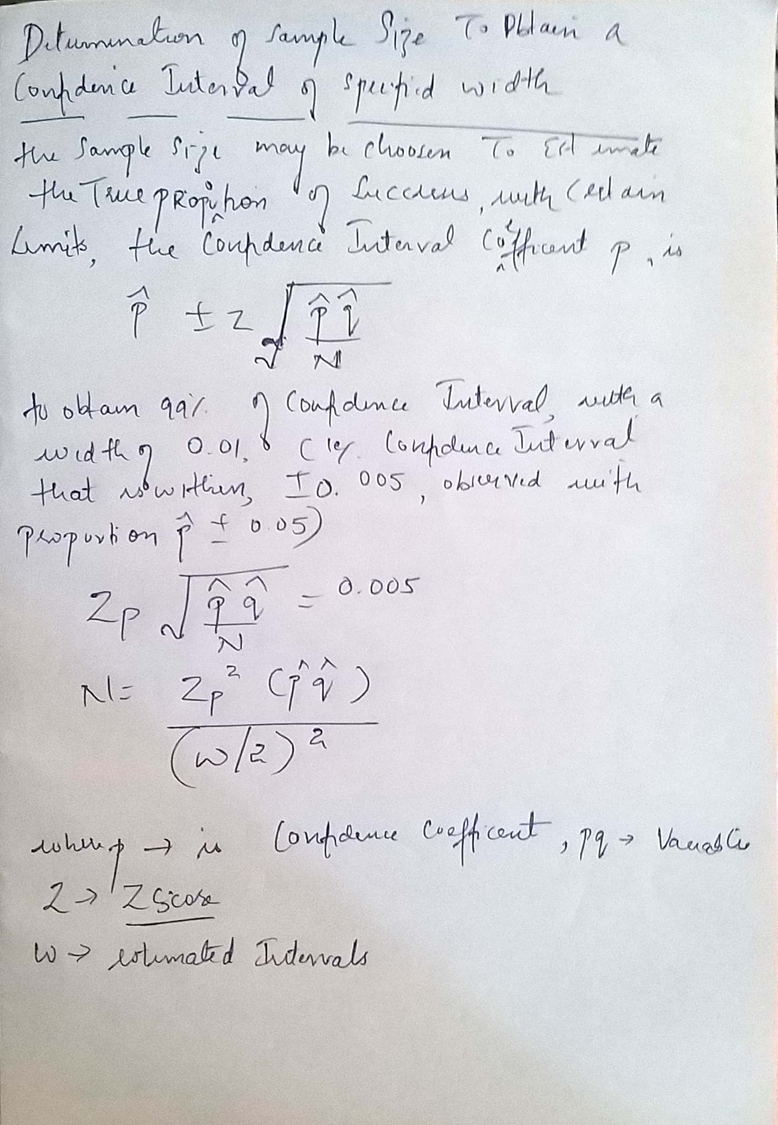 Determination of Sample Size To Obtain a
Confidence Interval of specified width
the Sample Size may be choosen To Estimate
the True proportion of Success, with Certain
Limits, the Confidence Interval Coefficent p, is
p̂ ± z √(p̂ q̂ / N)
to obtain 99% of Confidence Interval, with a
width of 0.01, Confidence Interval
that is within, ±0.005, observed with
proportion p̂ ± 0.05)
Zp √(p̂ q̂ / N) = 0.005
N = Zp² (p̂ q̂) / (w/2)²
where p → is Confidence Coefficent, pq → Variable
Z → Z Score
w → estimated Intervals